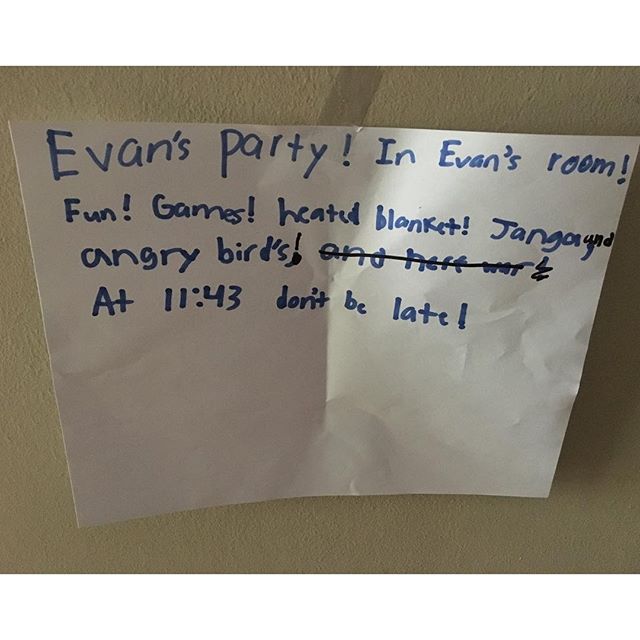 Evan's party! In Evan's room!
Fun! Games! heated blanket! Janga and
angry bird's!
At 11:43 don't be late!